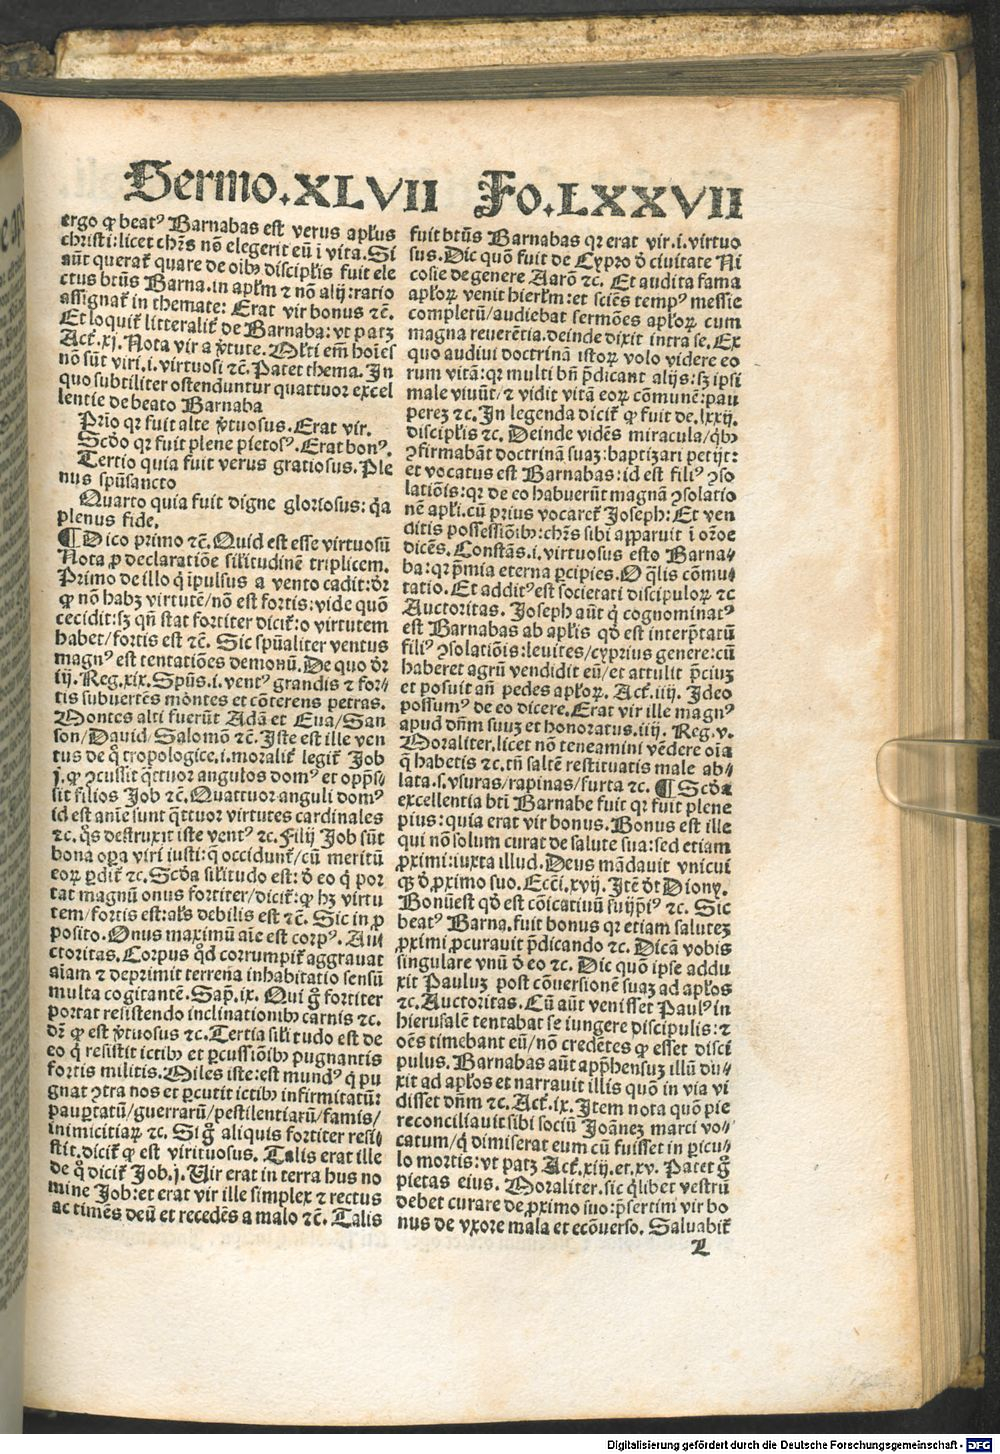 Sermo.XLVII Fo.LXXVII
ergo ꝙ beatꝰ Barnabas est verus apl̃us
christi:licet chr̃s nõ elegerit eũ ĩ vita.Si
aũt querat̃ quare de oib⁹ discipl̃is fuit ele
ctus btũs Barna.in apl̃m ⁊ nõ alij:ratio
assignat̃ in themate: Erat vir bonus ⁊c̃.
Et loquit̃ litteralit̃ de Barnaba:vt patꝫ
Act̃.xj.Nota vir a v̾tute.Ml̃ti em̃ hoĩes
nõ sũt viri.i.virtuosi ⁊c̃.Patet thema.In
quo subtiliter ostenduntur quattuor excel
lentie de beato Barnaba
Prĩo qꝛ fuit alte v̾tuosus.Erat vir.
Scd̃o qꝛ fuit plene pietosꝰ.Erat bonꝰ.
Tertio quia fuit verus gratiosus.Ple
nus spũsancto
Quarto quia fuit digne gloriosus: q̃a
plenus fide.
¶Dico primo ⁊c̃.Quid est esse virtuosũ
Nota ꝑ declaratiõe sil̃itudinẽ triplicem.
Primo de illo q̇ ĩpulsus a vento cadit:dr̃
ꝙ nõ habꝫ virtutẽ/nõ est fortis:vide quõ
cecidit:sꝫ qñ stat fortiter dicit̃:o virtutem
habet/fortis est ⁊c̃. Sic spũaliter ventus
magnꝰ est tentatiões demonũ.De quo dr̃
iij.Reg.xix.Spũs.i.ventꝰ grandis ⁊ for⸗
tis subuertẽs montes et cõterens petras.
Montes alti fuerũt Adã et Eua/San
son/Dauid/Salomõ ⁊c̃.Iste est ille ven
tus de q̊ tropologice.i.moralit̃ legit̃ Job
j.ꝙ ꝯcussit q̃ttuor angulos domꝰ et opp̃s⸗
sit filios Job ⁊c̃.Quattuor anguli domꝰ
id est anĩe sunt q̃ttuor virtutes cardinales
⁊c.q̃s destruxit iste ventꝰ ⁊c.Filij Job sũt
bona oꝑa viri iusti:q̃ occidunt̃/cũ meritũ
eoꝝ ꝑdit̃ ⁊c.Scd̃a sil̃itudo est:ð eo q̇ por
tat magnũ onus fortiter/dicit̃:ꝙ hꝫ virtu
tem/fortis est:al̃s debilis est ⁊c̃.Sic in ꝓ
posito.Onus maximũ aĩe est corpꝰ. Au⸗
ctoritas.Corpus qd̊ corrumpit̃ aggrauat
aĩam ⁊ deprimit terrena inhabitatio sensũ
multa cogitantẽ.Sap̃.ix. Qui g̊ fortiter
portat resistendo inclinationib⁹ carnis ⁊c.
dr̃ ꝙ est v̾tuosus ⁊c.Tertia sil̃i tudo est de
eo q̇ resistit ictib⁹ et ꝑcussiõib⁹ pugnantis
fortis militis.Miles iste:est mundꝰ q̇ pu
gnat ꝯtra nos et ꝑcutit ictib⁹ infirmitatũ:
pauꝑtatũ/guerrarũ/pestilentiarũ/famis/
inimicitiaꝝ ⁊c. Si g̊ aliquis fortiter resi⸗
stit.dicit̃ ꝙ est virituosus. Talis erat ille
de q̊ dicit̃ Job.j. Uir erat in terra hus no
mine Job:et erat vir ille simplex ⁊ rectus
ac timẽs deũ et recedẽs a malo ⁊c̃. Talis
fuit btũs Barnabas qꝛ erat vir.i.virtuo
sus.Dic quõ fuit de Cypro ð ciuitate Ni
cosie de genere Aarõ ⁊c. Et audita fama
apl̃oꝝ venit hierl̃m:et sciẽs tempꝰ messie
completũ/audiebat sermões apl̃oꝝ cum
magna reuerẽtia.deinde dixit intra se.Ex
quo audiui doctrinã istoꝝ volo videre eo
rum vitã:qꝛ multi bñ p̃dicant alijs:sꝫ ipsi
male viuũt/⁊ vidit vitã eoꝝ cõmunẽ:pau
perez ⁊c.In legenda dicit̃ ꝙ fuit de.lxxij.
discipl̃is ⁊c. Deinde vidẽs miracula/q̇b⁹
ꝯfirmabãt doctrinã suaꝫ:baptizari petijt:
et vocatus est Barnabas:id est filiꝰ ꝯso
latiõis:qꝛ de eo habuerũt magnã ꝯsolatio
nẽ apl̃i.cũ prius vocaret̃ Joseph:Et ven
ditis possessiõib⁹:chr̃s sibi apparuit ĩ oꝛõe
dicẽs.Constãs.i.virtuosus esto Barna⸗
ba:qꝛ p̃mia eterna ꝑcipies.O q̃lis cõmu⸗
tatio. Et additꝰ est societati discipuloꝝ ⁊c
Auctoritas. Joseph aũt q̇ cognominatꝰ
est Barnabas ab apl̃is qd̃ est interp̃tatũ
filiꝰ ꝯsolatiõis:leuites/cyprius genere:cũ
haberet agrũ vendidit eũ/et attulit p̃ciuꝫ
et posuit añ pedes apl̃oꝝ. Act̃.iiij. Ideo
possumꝰ de eo dicere.Erat vir ille magnꝰ
apud dñm suuꝫ et honoratus.iiij. Reg.v.
Moraliter.licet nõ teneamini vẽdere oĩa
q̃ habetis ⁊c.tñ saltẽ restituatis male ab⸗
lata.s.vsuras/rapinas/furta ⁊c. ¶ Scd̃a
excellentia btĩ Barnabe fuit qꝛ fuit plene
pius:quia erat vir bonus.Bonus est ille
qui nõ solum curat de salute sua:sed etiam
ꝓximi:iuxta illud.Deus mãdauit vnicui
qꝫ ð ꝓximo suo.Ecc̃i.xvij.Itẽ ðt Diony.
Bonũ est qd̃ est cõicatiuũ suijp̃i⁹ ⁊c. Sic
beatꝰ Barna.fuit bonus qꝛ etiam saluteꝫ
ꝓximi ꝓcurauit p̃dicando ⁊c. Dicã vobis
singulare vnũ ð eo ⁊c. Dic quõ ipse addu
xit Pauluꝫ post cõuersionẽ suaꝫ ad apl̃os
⁊c.Auctoritas.Cũ aũt venisset Paulꝰ in
hierusalẽ tentabat se iungere discipulis:⁊
oẽs timebant eũ/nõ credẽtes ꝙ esset disci
pulus. Barnabas aũt app̃hensuꝫ illũ du⸗
xit ad apl̃os et narrauit illis quõ in via vi
disset dñm ⁊c.Act̃.ix.Item nota quõ pie
reconciliauit sibi sociũ Joãnez marci vo⸗
catum/q̇ dimiserat eum cũ fuisset in ꝑicu⸗
lo mortis:vt patꝫ Act̃.xij.et.xv. Patet g̊
pietas eius. Moraliter.sic q̇libet vestrũ
debet curare de ꝓximo suo:p̃sertim vir bo
nus de vxore mala et ecõuerso. Saluabit̃
L
Digitalisierung gefördert durch die Deutsche Forschungsgemeinschaft - DFG